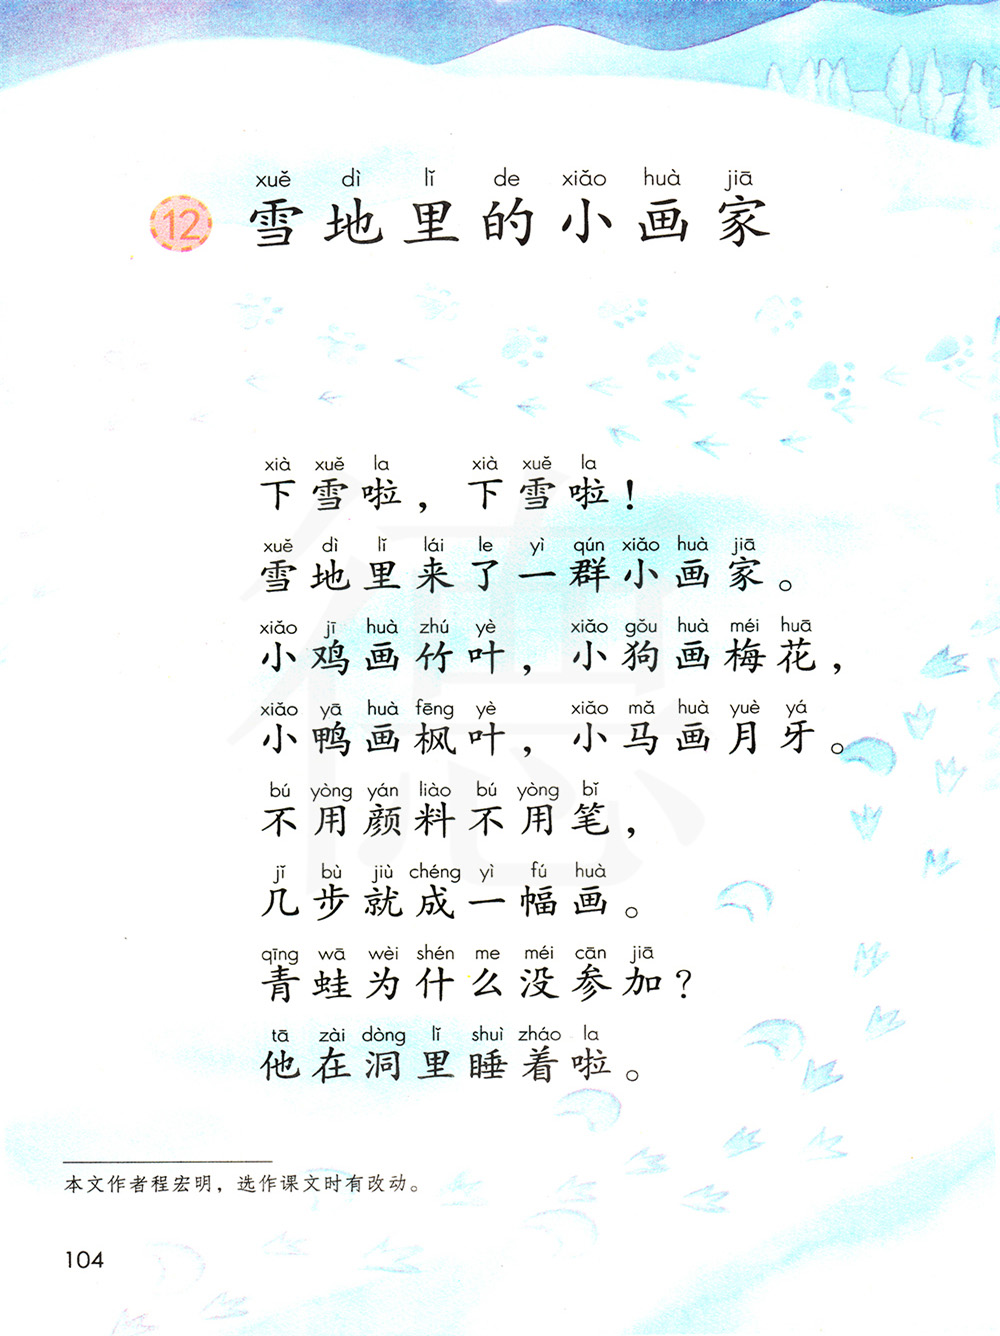 xuě dì lǐ de xiǎo huà jiā
12 雪地里的小画家
xià xuě la xià xuě la
下雪啦，下雪啦！
xuě dì lǐ lái le yì qún xiǎo huà jiā
雪地里来了一群小画家。
xiǎo jī huà zhú yè xiǎo gǒu huà méi huā
小鸡画竹叶，小狗画梅花，
xiǎo yā huà fēng yè xiǎo mǎ huà yuè yá
小鸭画枫叶，小马画月牙。
bú yòng yán liào bú yòng bǐ
不用颜料不用笔，
jǐ bù jiù chéng yì fú huà
几步就成一幅画。
qīng wā wèi shén me méi cān jiā
青蛙为什么没参加？
tā zài dòng lǐ shuì zháo la
他在洞里睡着啦。
本文作者程宏明，选作课文时有改动。
104